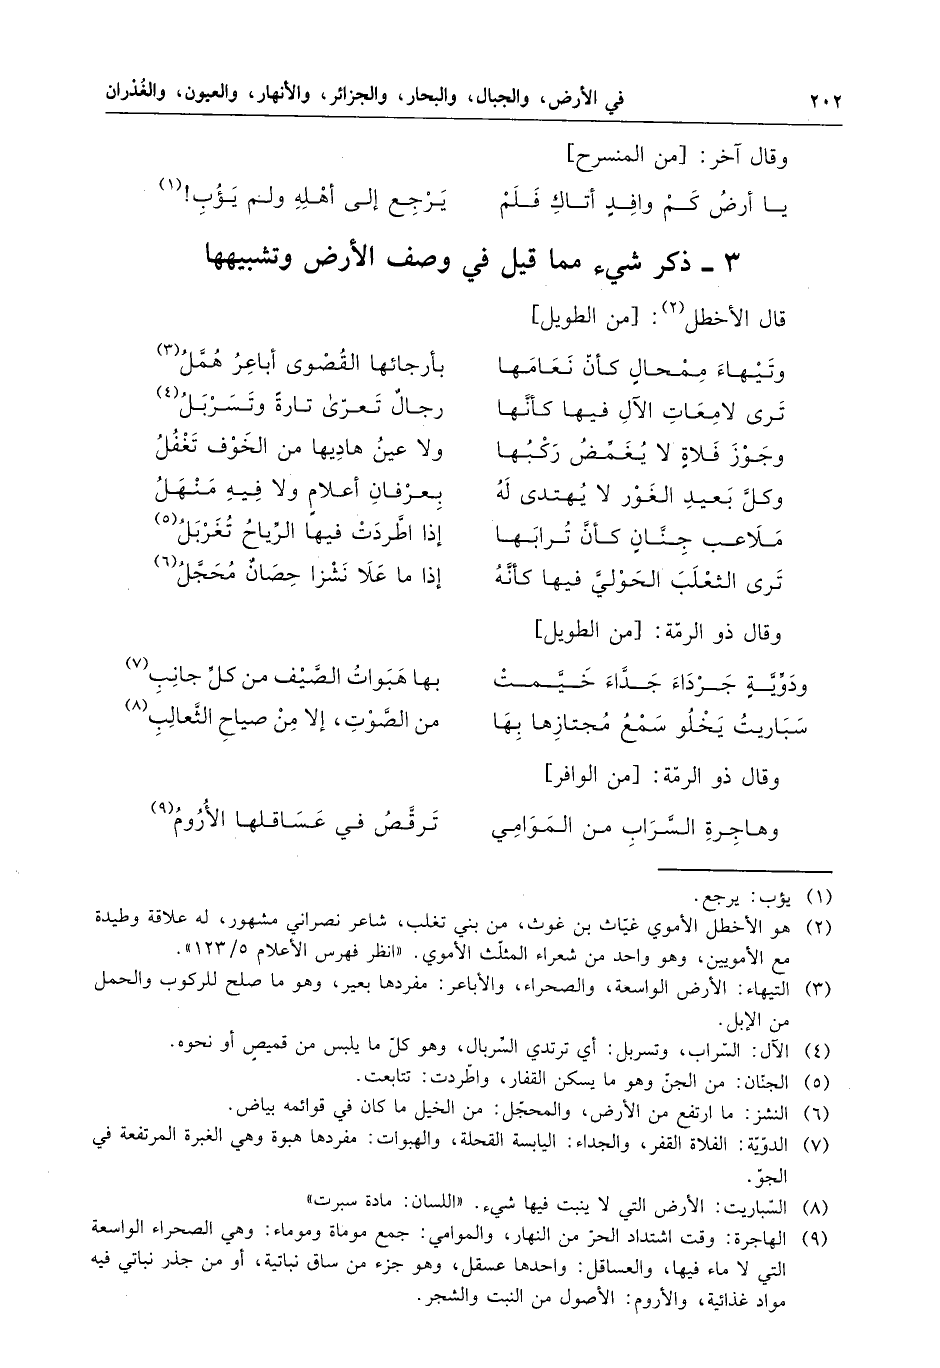 ٢٠٢ في الأرض، والجبال، والبحار، والجزائر، والأنهار، والعيون، والغُدْران
وقال آخر: [من المنسرح]
يـا أرضُ كَـمْ وافِـدٍ أتـاكِ فَـلَمْ يَـرْجِـع إلى أهْـلِهِ ولـم يَـؤُبِ!(١)
٣ ـ ذكر شيء مما قيل في وصف الأرض وتشبيهها
قال الأخطل(٢): [من الطويل]
وتَيْهـاءَ مِمْحـالٍ كـأنّ نَعَامَهـا بأرجائهـا القُصْوى أباعِرُ هُمَّلُ(٣)
تَـرى لامِعَـاتِ الآلِ فيهـا كـأنَّهـا رجـالٌ تَـعـرّىٰ تـارةً وتَـسَـرْبَـلُ(٤)
وجَـوْزَ فَـلاةٍ لا يُغَـمِّـضُ رَكْبُـهـا ولا عينُ هادِيها من الخَوْف تَغْفُلُ
وكـلَّ بَـعيدِ الغَوْر لا يُهتدى لَهُ بِـعِـرْفـانِ أعـلامٍ ولا فِـيـهِ مَـنْـهَلُ
مَـلَاعـب جِـنَّـانٍ كـأنَّ تُـرابَـهـا إذا اطَّردَتْ فيها الرِّياحُ تُغَرْبَلُ(٥)
تَـرى الثعْلَبَ الحَوْليَّ فيهـا كأنَّهُ إذا ما عَلَا نَشْزا حِصَانٌ مُحَجَّلُ(٦)
وقال ذو الرمّة: [من الطويل]
ودَوِّيَّـةٍ جَـرْدَاءَ جَـدَّاءَ خَـيَّـمـتْ بها هَبَواتُ الصَّيْف من كلِّ جانِبِ(٧)
سَبَاريتُ يَخْلُو سَمْعُ مُجتازِها بِهَا من الصَّوْتِ، إلا مِنْ صياحِ الثَّعالِبِ(٨)
وقال ذو الرمّة: [من الوافر]
وهـاجِـرةِ السَّـرَابِ مـن الـمَـوَامِي تَـرقَّـصُ فـي عَـسَـاقـلهـا الأُرُومُ(٩)
(١) يؤب: يرجع.
(٢) هو الأخطل الأموي غيّاث بن غوث، من بني تغلب، شاعر نصراني مشهور، له علاقة وطيدة
مع الأمويين، وهو واحد من شعراء المثلّث الأموي. «انظر فهرس الأعلام ١٢٣/٥».
(٣) التيهاء: الأرض الواسعة، والصحراء، والأباعر: مفردها بعير، وهو ما صلح للركوب والحمل
من الإبل.
(٤) الآل: السّراب، وتسربل: أي ترتدي السِّربال، وهو كلّ ما يلبس من قميصٍ أو نحوه.
(٥) الجنّان: من الجنّ وهو ما يسكن القفار، واطّردت: تتابعت.
(٦) النشز: ما ارتفع من الأرض، والمحجّل: من الخيل ما كان في قوائمه بياض.
(٧) الدوّيّة: الفلاة القفر، والجداء: اليابسة القحلة، والهبوات: مفردها هبوة وهي الغبرة المرتفعة في
الجوّ.
(٨) السّباريت: الأرض التي لا ينبت فيها شيء. «اللسان: مادة سبرت»
(٩) الهاجرة: وقت اشتداد الحرّ من النهار، والموامي: جمع موماة وموماء: وهي الصحراء الواسعة
التي لا ماء فيها، والعساقل: واحدها عسقل، وهو جزء من ساق نباتية، أو من جذر نباتي فيه
مواد غذائية، والأروم: الأصول من النبت والشجر.